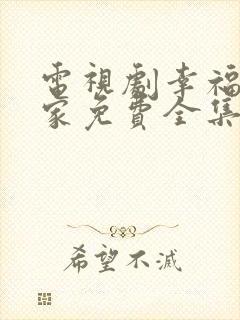 電視劇幸福
家免費全集
希望不滅